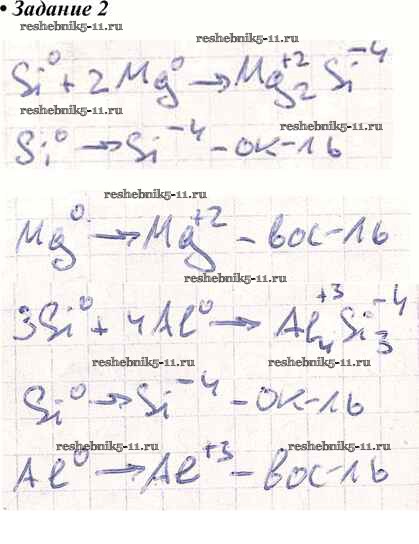 • Задание 2
reshebnik5-11.ru
Si⁰ + 2Mg⁰ → Mg₂⁺²Si⁻⁴
reshebnik5-11.ru reshebnik5-11.ru
Si⁰ → Si⁻⁴ - ок-ль
reshebnik5-11.ru
Mg⁰ → Mg⁺² - вос-ль
reshebnik5-11.ru
3Si⁰ + 4Al⁰ → Al₄⁺³Si₃⁻⁴
reshebnik5-11.ru
Si⁰ → Si⁻⁴ - ок-ль
reshebnik5-11.ru reshebnik5-11.ru
Al⁰ → Al⁺³ - вос-ль